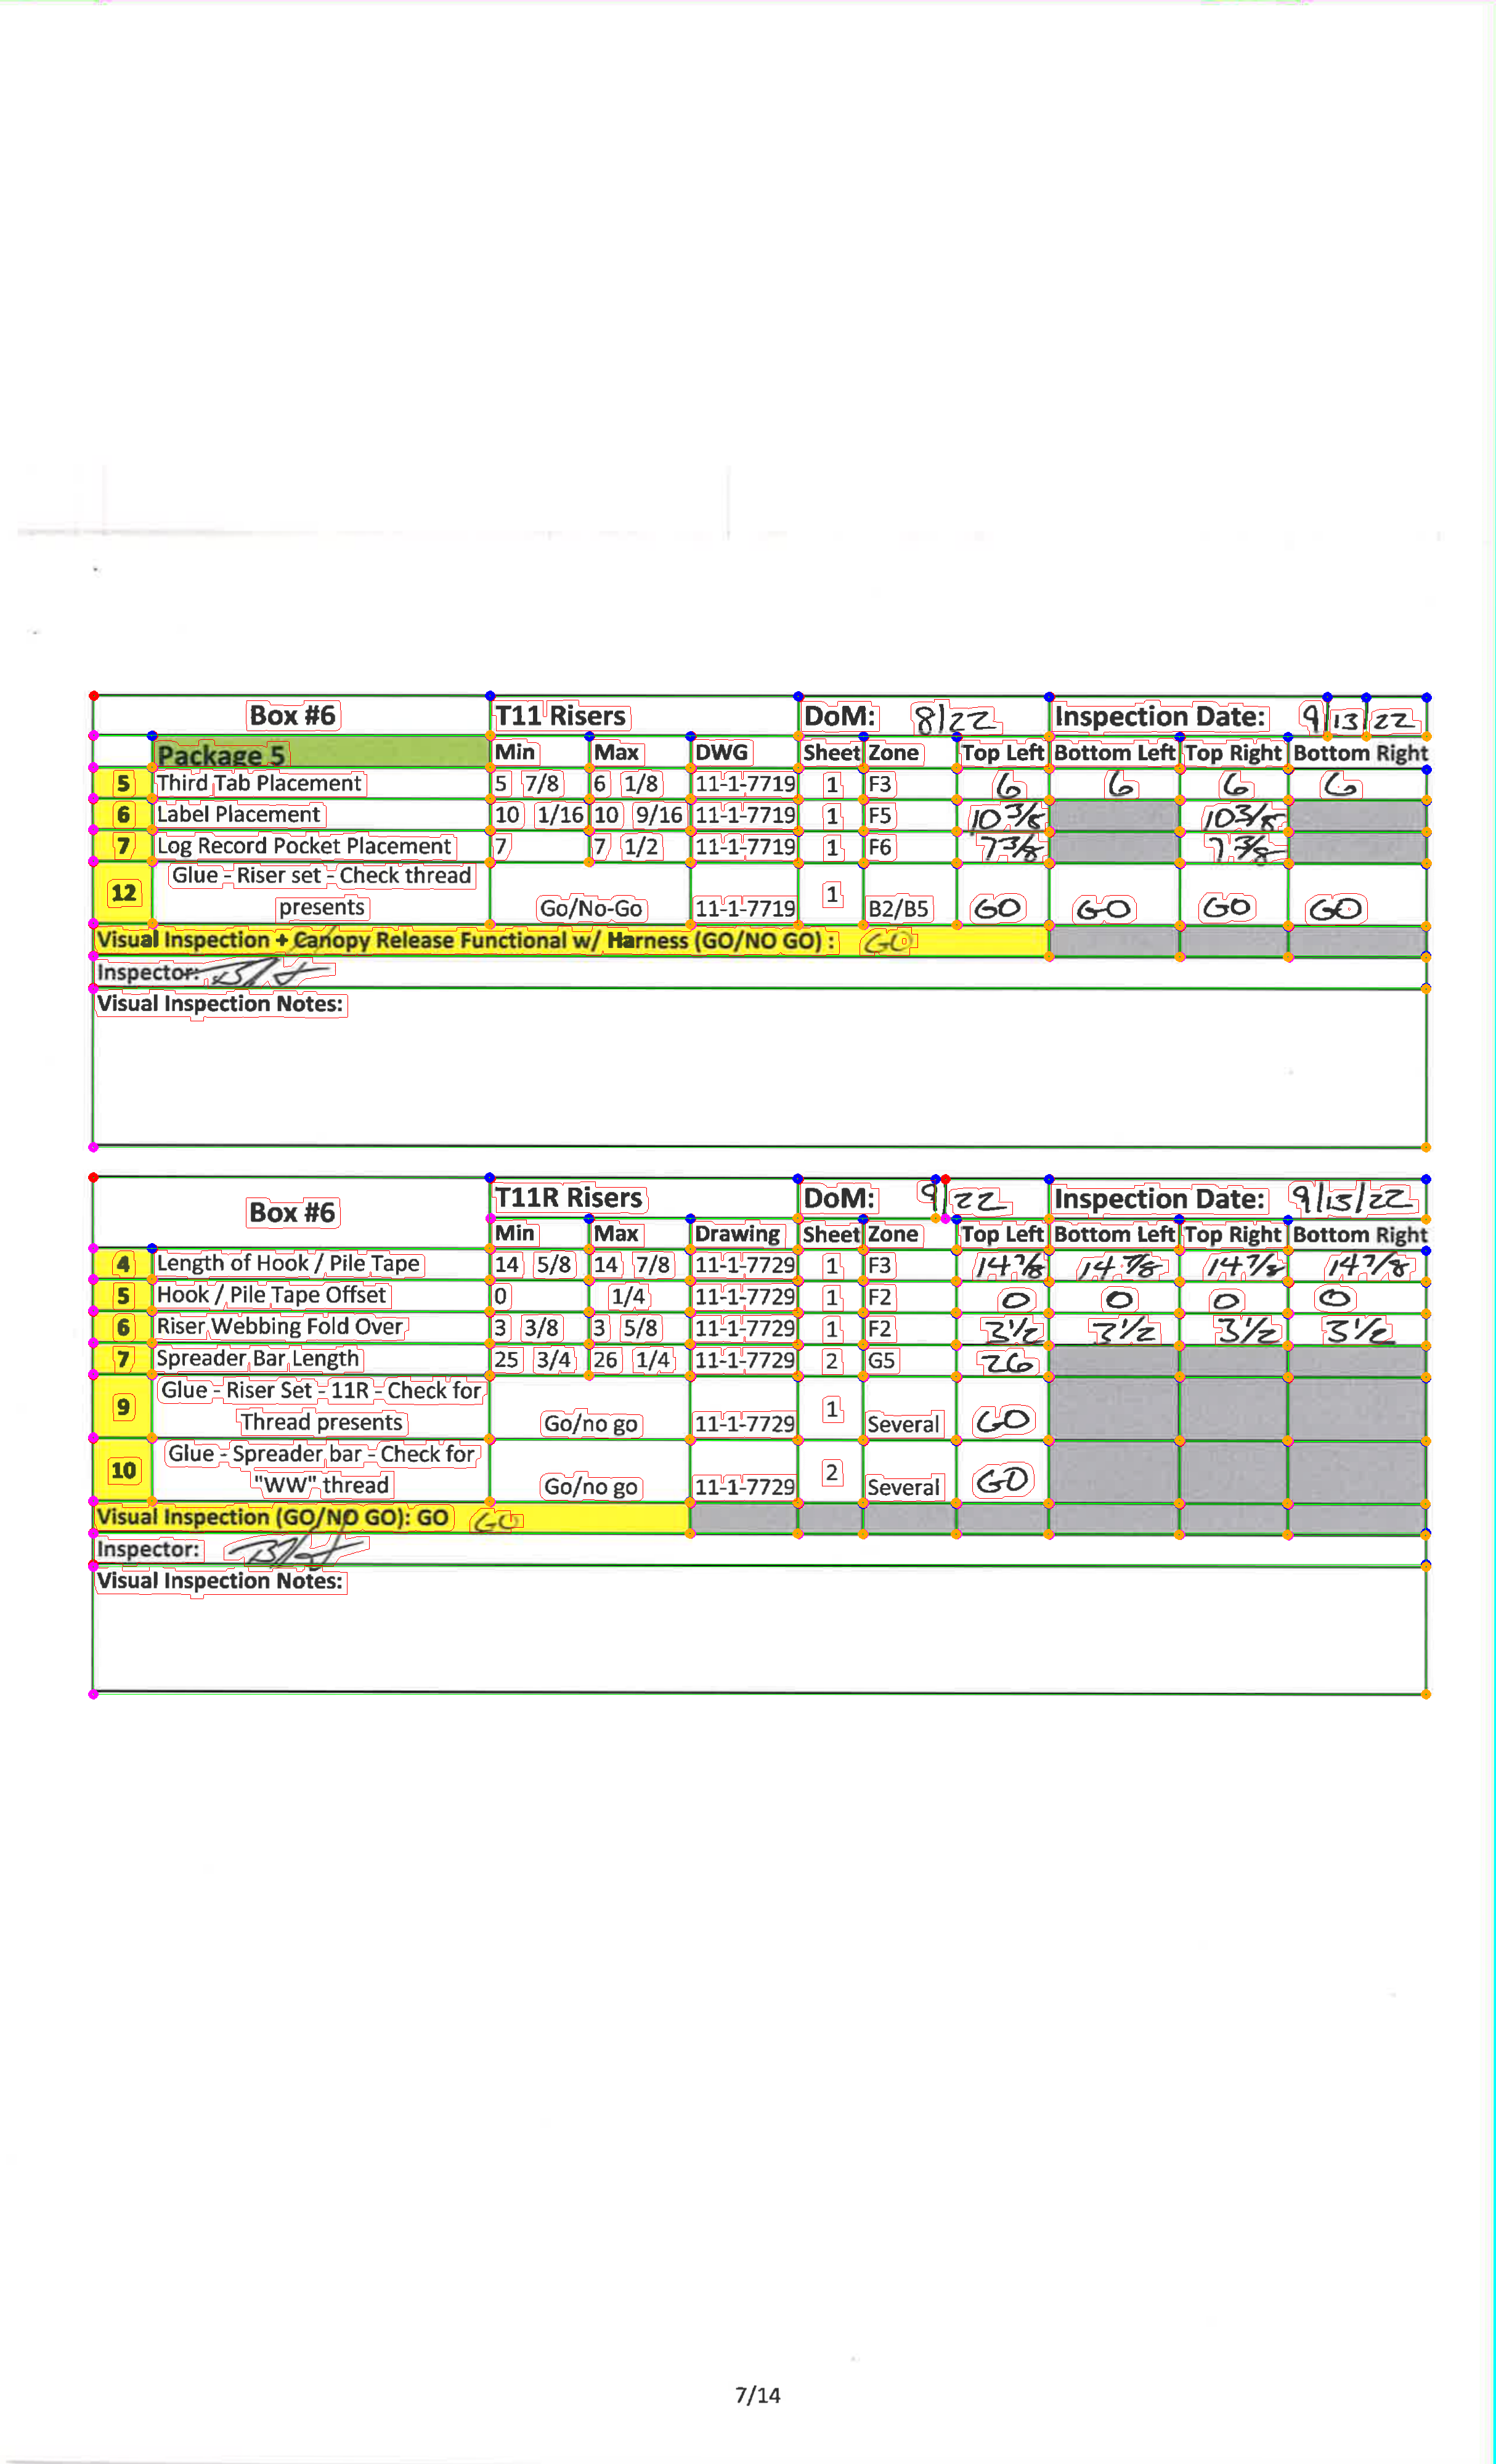 Box #6 T11 Risers DoM: 8/22 Inspection Date: 9/13/22
Package 5 Min Max DWG Sheet Zone Top Left Bottom Left Top Right Bottom Right
5 Third Tab Placement 5 7/8 6 1/8 11-1-7719 1 F3 6 6 6 6
6 Label Placement 10 1/16 10 9/16 11-1-7719 1 F5 10 3/8 10 3/8
7 Log Record Pocket Placement 7 7 1/2 11-1-7719 1 F6 7 3/8 7 3/8
12 Glue - Riser set - Check thread
presents Go/No-Go 11-1-7719 1 B2/B5 GO GO GO GO
Visual Inspection + Canopy Release Functional w/ Harness (GO/NO GO) : GO
Inspector:
Visual Inspection Notes:
Box #6 T11R Risers DoM: 9/22 Inspection Date: 9/13/22
Min Max Drawing Sheet Zone Top Left Bottom Left Top Right Bottom Right
4 Length of Hook / Pile Tape 14 5/8 14 7/8 11-1-7729 1 F3 14 7/8 14 7/8 14 7/8 14 7/8
5 Hook / Pile Tape Offset 0 1/4 11-1-7729 1 F2 0 0 0 0
6 Riser Webbing Fold Over 3 3/8 3 5/8 11-1-7729 1 F2 3 1/2 3 1/2 3 1/2 3 1/2
7 Spreader Bar Length 25 3/4 26 1/4 11-1-7729 2 G5 26
9 Glue - Riser Set - 11R - Check for
Thread presents Go/no go 11-1-7729 1 Several GO
10 Glue - Spreader bar - Check for
"WW" thread Go/no go 11-1-7729 2 Several GO
Visual Inspection (GO/NO GO): GO GO
Inspector:
Visual Inspection Notes:
7/14